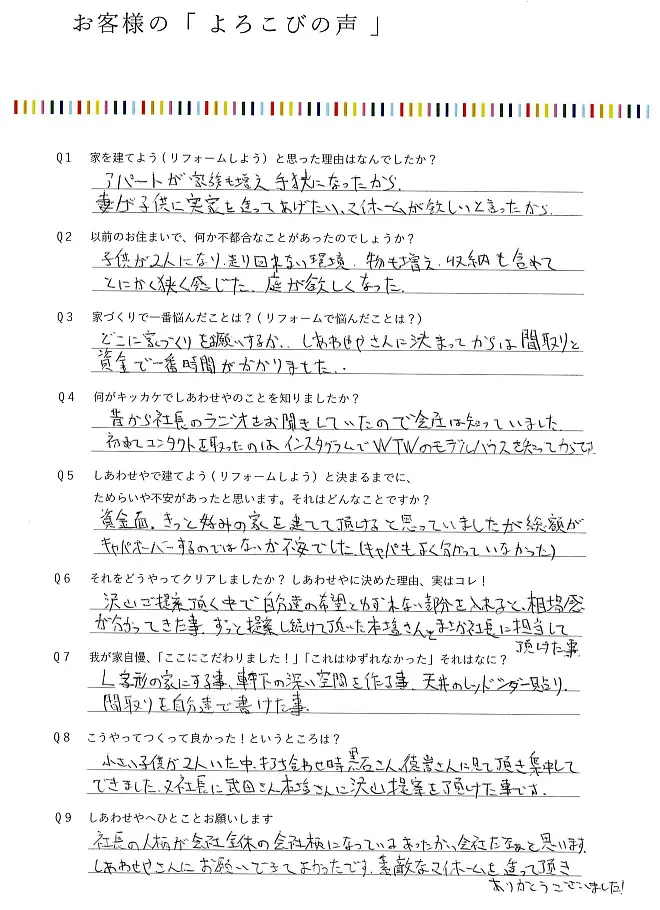 お客様の「 よろこびの声 」
Q1 家を建てよう(リフォームしよう)と思った理由はなんでしたか?
アパートが家族も増え手狭になったから。
妻が子供に実家を造ってあげたい、マイホームが欲しいと言ったから。
Q2 以前のお住まいで、何か不都合なことがあったのでしょうか?
子供が2人になり、走り回れない環境。物も増え、収納も含めて
とにかく狭く感じた。庭が欲しくなった。
Q3 家づくりで一番悩んだことは?(リフォームで悩んだことは?)
どこに家づくりをお願いするか、、しあわせやさんに決まってからは間取りと
資金で一番時間がかかりました、、
Q4 何がキッカケでしあわせやのことを知りましたか?
昔から社長のラジオをお聞きしていたので会社は知っていました。
初めてコンタクトを取ったのはインスタグラムでWTWのモデルハウスを知ってからです
Q5 しあわせやで建てよう(リフォームしよう)と決まるまでに、
ためらいや不安があったと思います。それはどんなことですか?
資金面。きっと好みの家を建てて頂けると思っていましたが総額が
キャパオーバーするのではないか不安でした。(キャパもよく分かっていなかった)
Q6 それをどうやってクリアしましたか? しあわせやに決めた理由、実はコレ!
沢山ご提案頂く中で自分達の希望とゆずれない部分を入れると、相場感
が分かってきた事。ずっと提案し続けて頂いた本場さんとまさか社長に担当して
頂けた事
Q7 我が家自慢、「ここにこだわりました!」「これはゆずれなかった」それはなに?
L字形の家にする事、軒下の深い空間を作る事、天井のレッドシダー貼り、
間取りを自分達で書けた事。
Q8 こうやってつくって良かった!というところは?
小さい子供が2人いた中、打ち合わせ時黒石さん、徳営さんに見て頂き集中して
できました。又社長に武田さん本場さんに沢山提案を頂けた事です。
Q9 しあわせやへひとことお願いします
社長の人柄が会社全体の会社柄になっているあったかい会社だなぁと思います。
しあわせやさんにお願いできてよかったです。素敵なマイホームを造って頂き
ありがとうございました!